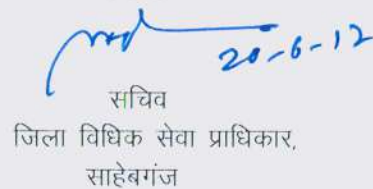 20-6-12
सचिव
जिला विधिक सेवा प्राधिकार,
साहेबगंज